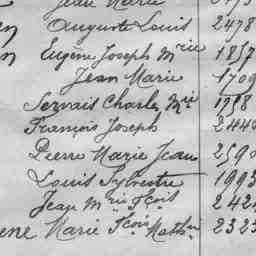 Jean Marie
Auguste Louis 2478
Eugène Joseph Mrie 1857
Jean Marie 1709
Servais Charles Mrie 1758
François Joseph 2440
Pierre Marie Jean 2590
Louis Sylvestre 1993
Jean Mrie Fçois 242
ene Marie Fçois Mathin 2323